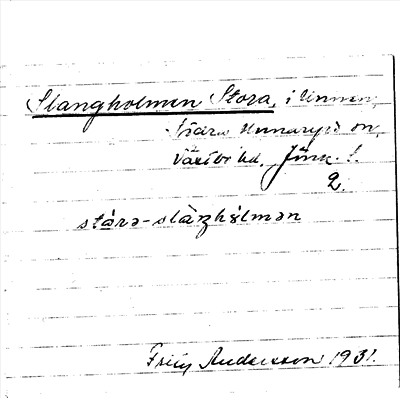 Slangholmen Stora, i Unnen,
Södra Unnaryds sn,
Västbo hd, Jönk. l.
2.
stóra-slàŋhólmən
Fritz Andersson 1931.